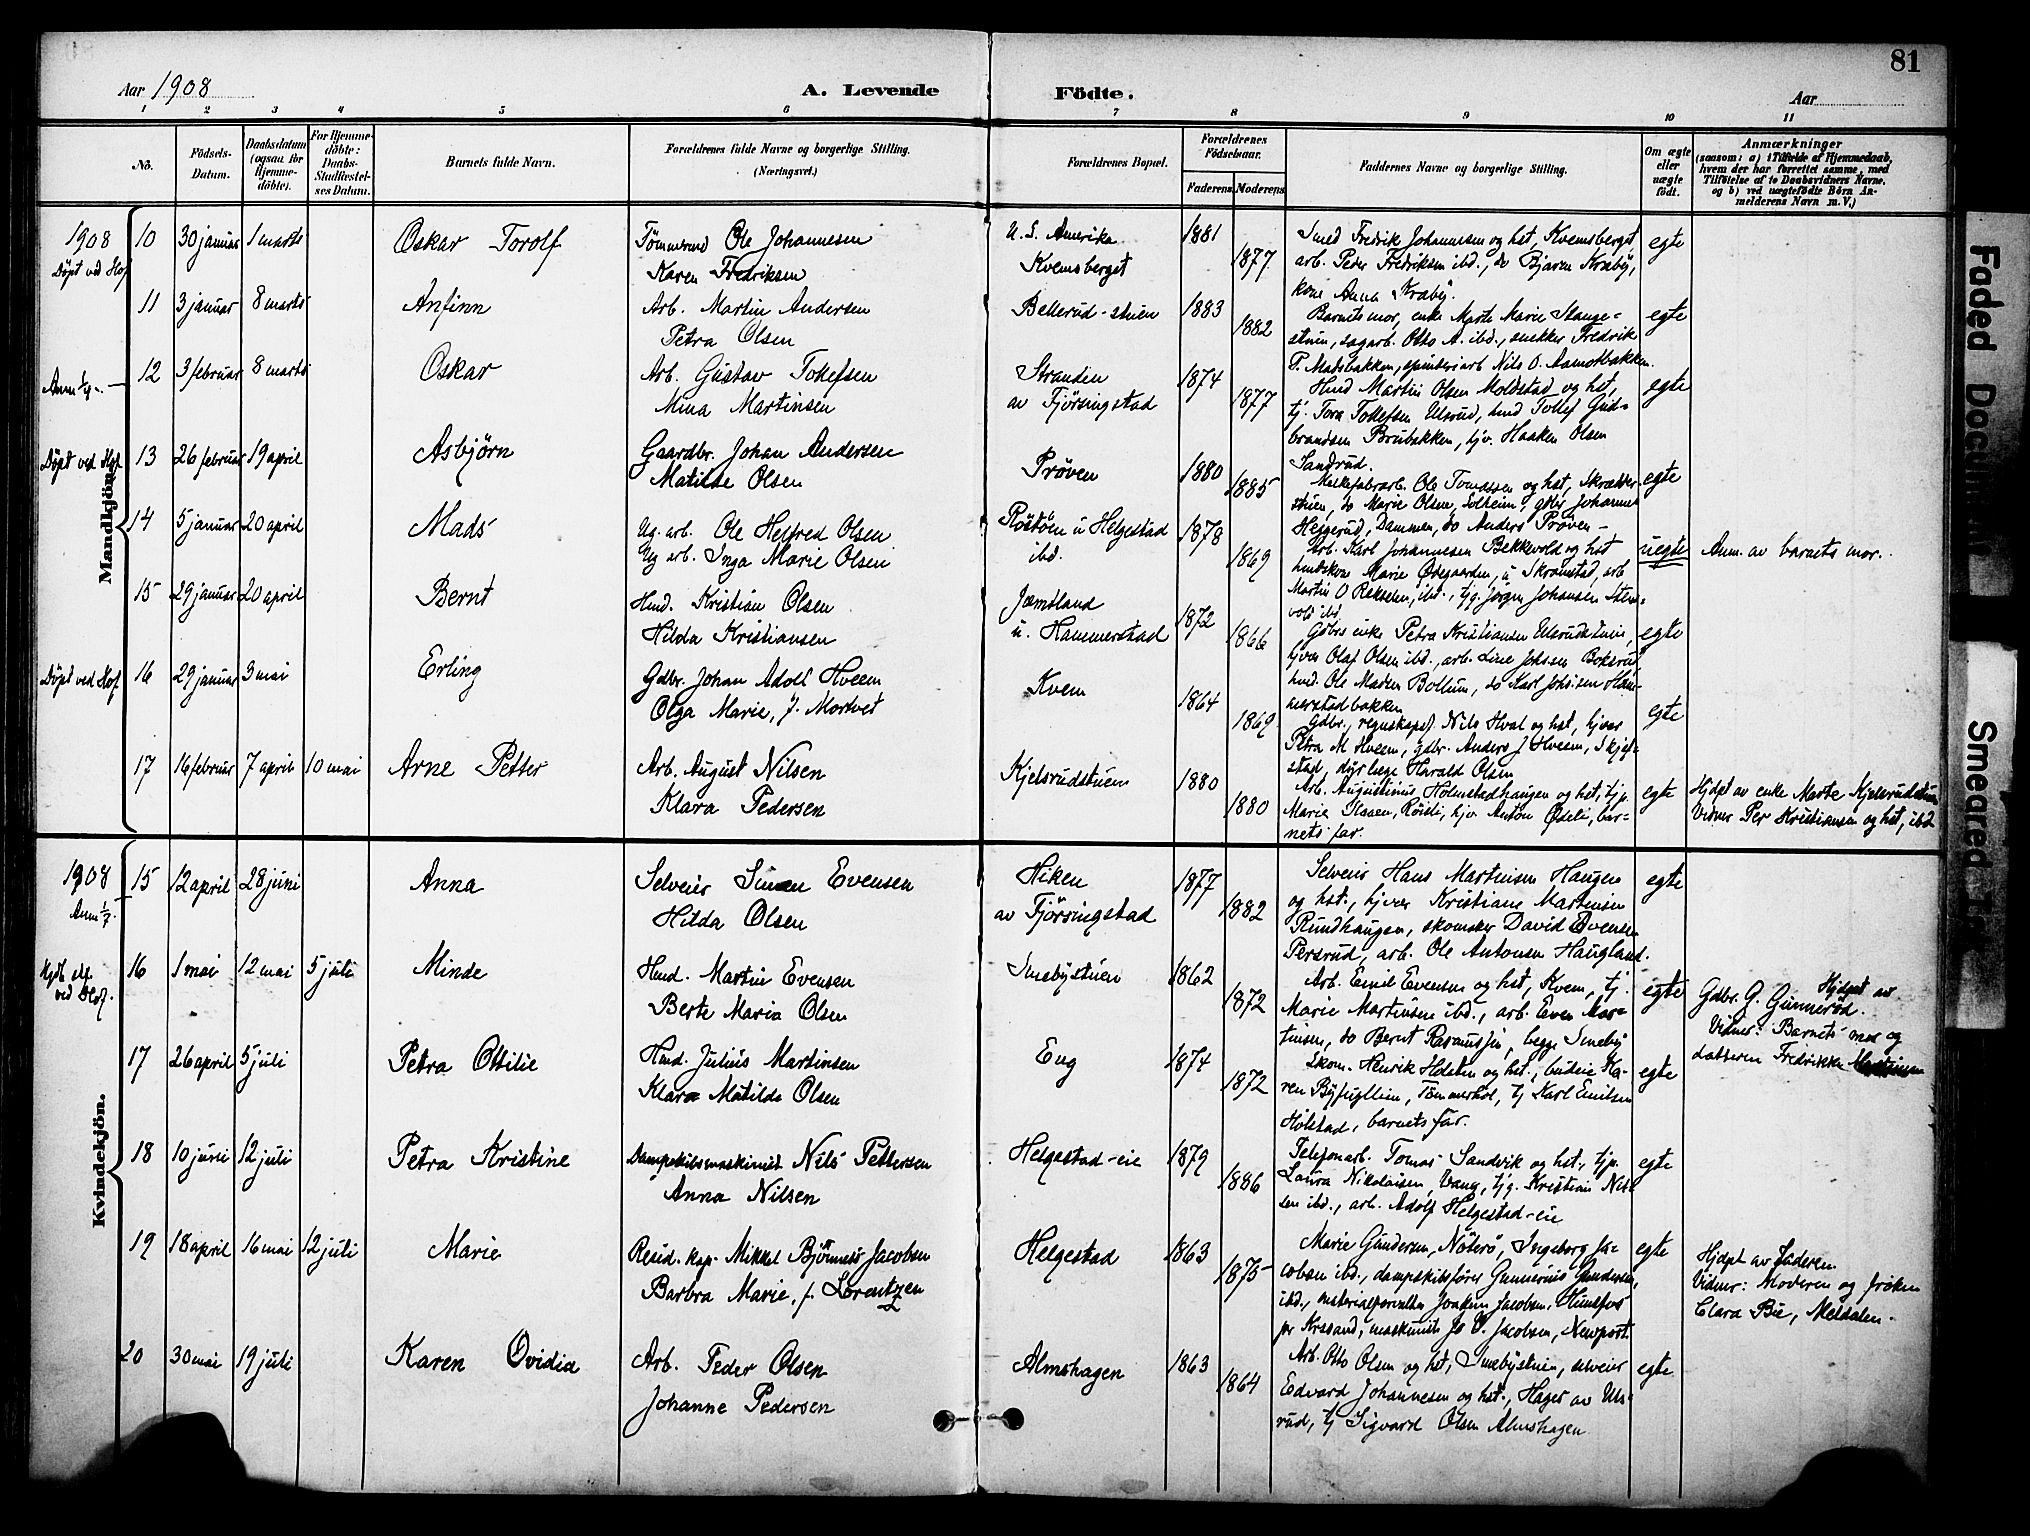 81
Aar 1908
A. Levende
Födte.
Aar
1 2 3 4 5 6 7 8 9 10 11
No.
Födsels-Datum.
Daabsdatum (ogsaa for Hjemme-döbte).
For Hjemme-döbte: Daabs-Stadfæstel-ses Datum.
Barnets fulde Navn.
Forældrenes fulde Navne og borgerlige Stilling. (Næringsvei.)
Forældrenes Bopæl.
Forældrenes Födselsaar.
Faderens. Moderens.
Faddernes Navne og borgerlige Stilling.
Om ægte eller uægte født.
Anmærkninger
(saasom: a) i Tilfælde af Hjemmedaab, hvem der har forrettet samme, med Tilföielse af to Daabsvidners Navne, og b) ved uægtefödte Börn Anmelderens Navn m. V.)
Mandkjön.
1908 10 30 januar 1 marts Oskar Torolf Tømmermd Ole Johannesen U. S. Amerika 1881 Smed Fredrik Johannesen og hst, Kvemsberget egte
Døpt ved Hof Karen Fredriksen Kvemsberget 1877 arb. Peder Fredriksen ibd., do Bjarne Kræby,
kone Anna Kræby.
11 3 januar 8 marts Anfinn Arb. Martin Andersen Bellerud-stuen 1883 Barnets mor, enke Marte Marie Stange- egte
Petra Olsen 1882 stuen, sagarb. Otto A. ibd., snekker Fredrik
T. Madsbakken, spinderiarb Nils O. Aamotbakken.
12 3 februar 8 marts Oskar Arb. Gustav Tollefsen Stranden 1874 Hmd Martin Olsen Moldstad og hst, egte
Mina Martinsen av Fjørsingstad 1877 tj. Tora Tollefsen Ulsrud, hmd Tollef Gud-
brandsen Brubakken, tjv. Haaken Olsen
Sandrud.
Døpt ved Hof 13 26 februar 19 april Asbjørn Gaardbr. Johan Andersen Prøven 1880 Melkefabarb. Ole Tomassen og hst, egte
Matilde Olsen 1885 stuen, do Marie Olsen, Solheim, Johanne
Heggerud, Dammen, do Anders Prøven-
14 5 januar 20 april Mads Ug. arb. Ole Helfred Olsen Røstøen u Helgestad 1878 Arb. Karl Johannesen Bekkevold og hst uegte Anm. av barnets mor.
Ug arb. Inga Marie Olsen ibd. 1869 Marie Ødegaarden, u Skramstad, arb
Martin O ibd., tjg. Jørgen Johansen
15 29 januar 20 april Bernt Hmd. Kristian Olsen Jæmtland 1872 Gdbrs enke Petra Kristiansen Ulsrudstuen, egte
Hilda Kristiansen u. Hammerstad 1866 Olaf Olsen ibd., arb. Boksrud
hmd. Ole Madsen Bollum, do Karl
merstad bakken
Døpt ved Hof 16 29 januar 3 mai Erling Gdbr. Johan Adolf Hveem Kvem 1864 Gdbr., Nils Hval og hst, egte
Olga Marie, f. Mortvet 1869 Petra M Hveem, gdbr. Anders J Hveem, Skjef-
stad, dyrlæge Harald Olsen
17 16 februar 7 april 10 mai Arne Petter Arb. August Nilsen Kjelsrudstuen 1880 Arb. Augustinus Holmstadhaugen og hst, tjp. egte Hjdpt av enke Marte Kjelsrudstuen
Klara Pedersen 1880 Marie Røisli, Anton Ødeli, bar- Vidner Per Kristiansen og hst, ibd
nets far.
Kvindekjön.
1908 15 12 april 28 juni Anna Selveier Simen Evensen Hiken 1877 Selveier Hans Martinsen Haugen egte
Hilda Olsen av Fjørsingstad 1882 og hst., Kristiane Martinsen
Rundhaugen, skomaker David Evensen
Persrud, arb. Ole Antonsen Haugland.
ved Hof. 16 1 mai 12 mai 5 juli Minde Hmd. Martin Evensen Smebystuen 1862 Arb. Emil Evensen og hst, Kvem, tj. egte Hjdpt av
Berte Maria Olsen 1872 Marie Martinsen ibd., arb. Even Mar- Gdbr. G. Gunnerød.
tinsen, do Bernt Rasmussen, begge Smeby Vidner: Barnets mor og
datteren Fredrikke
17 26 april 5 juli Petra Ottilie Hmd. Julius Martinsen Eng 1874 Skom. Henrik Holsten og hst., budeie Ka- egte
Klara Matilde Olsen 1872 ren Byfugllien, Tømmerhol, tj Karl Emilsen
Holstad, barnets far.
18 10 juni 12 juli Petra Kristine Dampskibsmaskinist Nils Pettersen Helgestad-eie 1879 Telefonarb. Tomas Sandvik og hst., tjp. egte
Anna Nilsen 1886 Laura Nikolaisen, Vang, tjg. Kristian Nil-
sen ibd., arb. Adolf Helgestad-eie
19 18 april 16 mai 12 juli Marie Resid. kap. Mikkel Bjønness-Jacobsen Helgestad 1863 Marie Gundersen, Nøterø, Ingeborg Ja- egte Hjdpt av faderen
Barbra Marie, f. Lorentzen 1875 cobsen ibd., dampskibsfører Gunnerius Gundersen, Vidner: Moderen og frøken
ibd., materialforvalter Joakim Jacobsen, Hunsfos Clara Bie, Meldalen.
pr Krssand, maskinist Jacobsen, Newport.
20 30 mai 19 juli Karen Ovidia Arb. Peder Olsen Almshagen 1863 Arb. Otto Olsen og hst, Smebystuen, selveier egte
Johanne Pedersen 1864 Edvard Johannesen og hst., Hagen av Uls-
rud, tj Sigvard Olsen Almshagen
Faded Document
Smeared Text